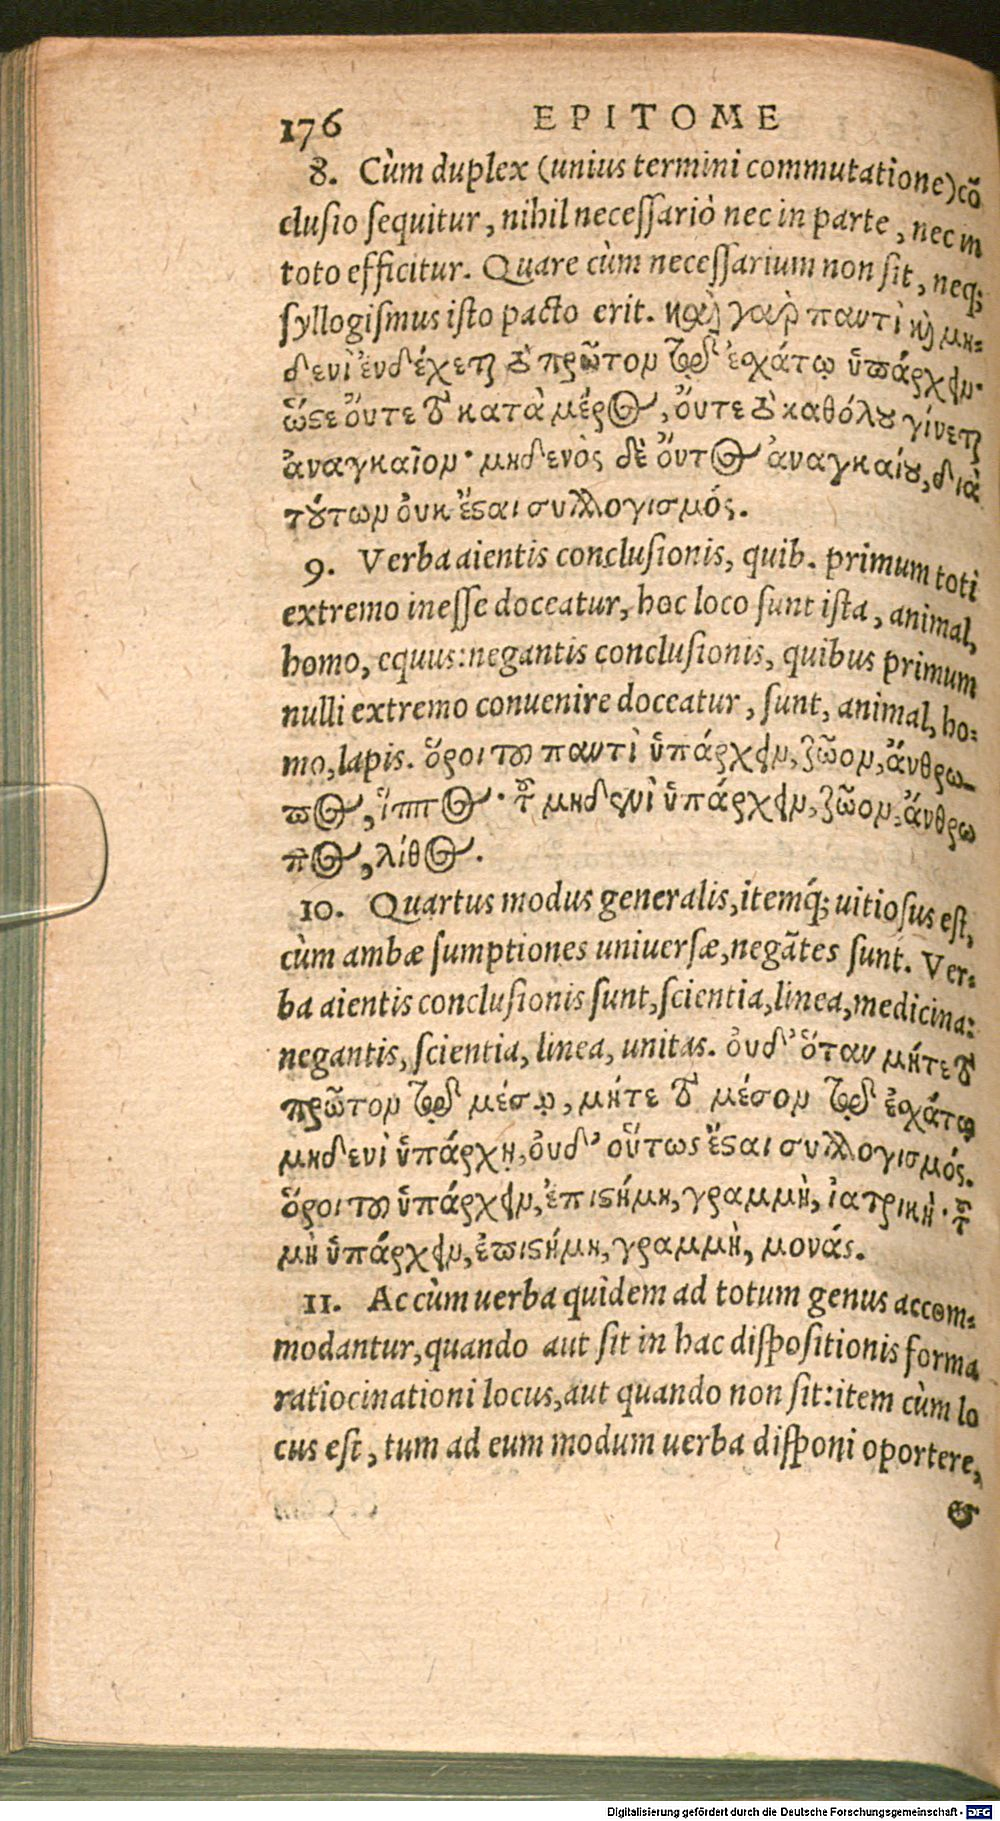 176 EPITOME
8. Cùm duplex (unius termini commutatione) cõ
clusio sequitur, nihil necessariò nec in parte, nec in
toto efficitur. Quare cùm necessarium non sit, neq;
syllogismus isto pacto erit. καὶ γὰρ παντὶ καὶ μη-
δενὶ ἐνδέχεται τὸ πρῶτον τῷ ἐσχάτῳ ὑπάρχειν·
ὥστε οὔτε τὸ κατὰ μέρος, οὔτε τὸ καθόλου γίνεται
ἀναγκαῖον· μηδενὸς δὲ ὄντος ἀναγκαίου, διὰ
τούτων οὐκ ἔσται συλλογισμός.
9. Verba aientis conclusionis, quib. primum toti
extremo inesse doceatur, hoc loco sunt ista, animal,
homo, equus: negantis conclusionis, quibus primum
nulli extremo conuenire doceatur, sunt, animal, ho-
mo, lapis. ὅροι τοῦ παντὶ ὑπάρχειν, ζῶον, ἄνθρω-
πος, ἵππος· τοῦ μηδενὶ ὑπάρχειν, ζῶον, ἄνθρω
πος, λίθος.
10. Quartus modus generalis, itemq́; uitiosus est,
cùm ambæ sumptiones uniuersæ, negãtes sunt. Ver-
ba aientis conclusionis sunt, scientia, linea, medicina:
negantis, scientia, linea, unitas. οὐδ' ὅταν μήτε τὸ
πρῶτον τῷ μέσῳ, μήτε τὸ μέσον τῷ ἐσχάτῳ
μηδενὶ ὑπάρχῃ, οὐδ' οὕτως ἔσται συλλογισμός.
ὅροι τοῦ ὑπάρχειν, ἐπιστήμη, γραμμὴ, ἰατρικὴ· τοῦ
μὴ ὑπάρχειν, ἐπιστήμη, γραμμὴ, μονάς.
11. Ac cùm uerba quidem ad totum genus accom-
modantur, quando aut sit in hac dispositionis forma
ratiocinationi locus, aut quando non sit: item cùm lo
cus est, tum ad eum modum uerba disponi oportere,
&
Digitalisierung gefördert durch die Deutsche Forschungsgemeinschaft - DFG